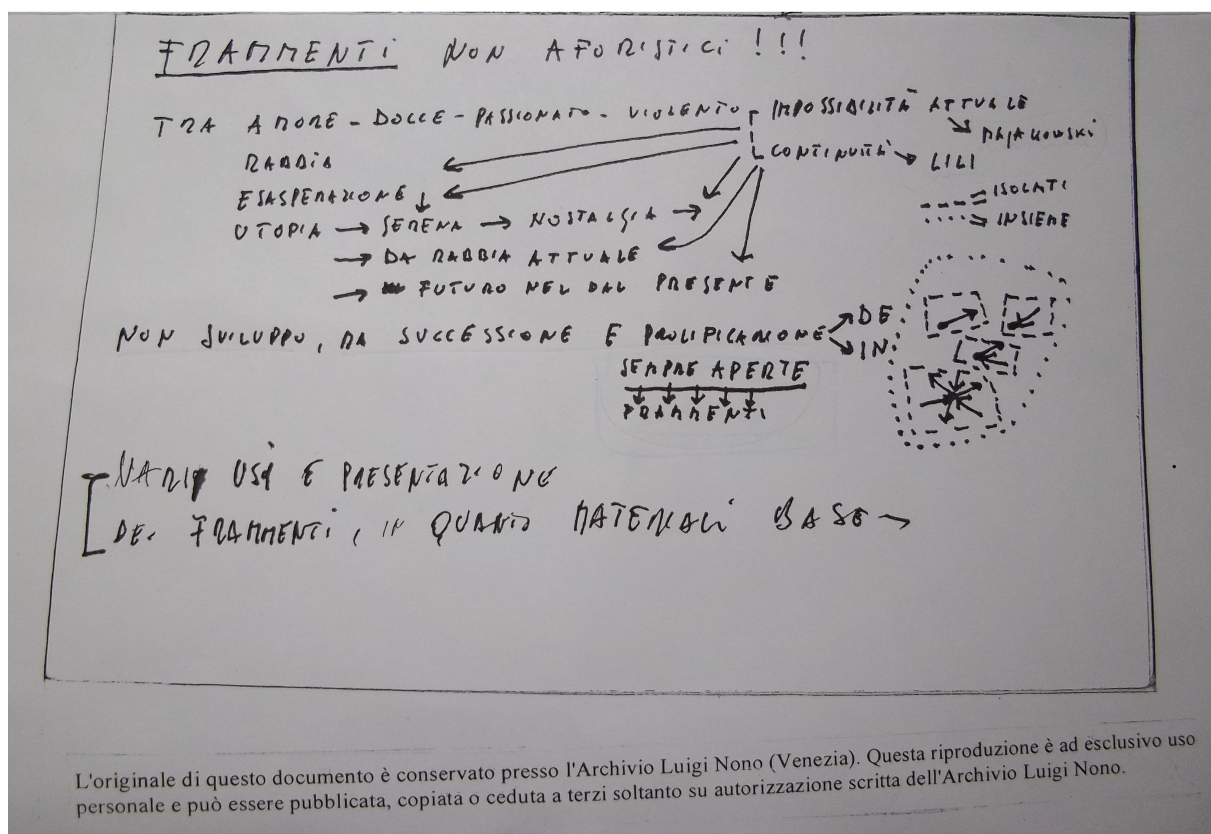 FRAMMENTI NON AFORISTICI !!!
TRA AMORE - DOLCE - PASSIONATO - VIOLENTO IMPOSSIBILITÀ ATTUALE
MAJAKOWSKI
RABBIA CONTINUITÀ → LILI
ESASPERAZIONE ↓ ISOLATI
UTOPIA → SERENA → NOSTALGIA → INSIEME
→ DA RABBIA ATTUALE
→ FUTURO NEL DAL PRESENTE
NON SVILUPPO, DA SUCCESSIONE E PROLIFICAZIONE DE
IN
SEMPRE APERTE
FRAMMENTI
VARI USI E PRESENTAZIONE
DEI FRAMMENTI, IN QUANTO MATERIALI BASE →
L'originale di questo documento è conservato presso l'Archivio Luigi Nono (Venezia). Questa riproduzione è ad esclusivo uso
personale e può essere pubblicata, copiata o ceduta a terzi soltanto su autorizzazione scritta dell'Archivio Luigi Nono.